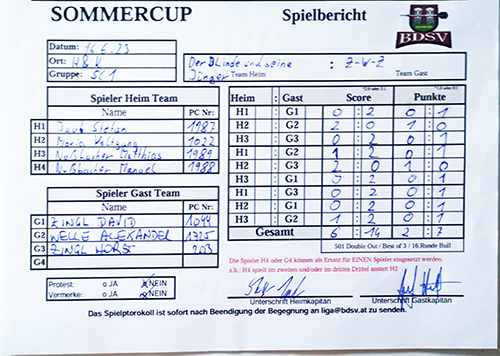 SOMMERCUP Spielbericht
BDSV
Datum: 16.6.23
Ort: HBV
Gruppe: SC1
Der Blinde und seine Jünger : Z-W-Z
Team Heim Team Gast
Spieler Heim Team
Name PC Nr:
H1 Stefan 1987
H2 Wolfgang 1022
H3 Nußbacher Matthias 1989
H4 Nußbacher Manuel 1988
Spieler Gast Team
Name PC Nr:
G1 ZINGL DAVID 1044
G2 WELLE ALEXANDER 1725
G3 ZINGL HORST 203
G4
Protest: o JA NEIN
Vermerke: o JA NEIN
Heim : Gast Score Punkte
H1 G1 0 : 2 0 : 1
H2 G2 2 : 0 1 : 0
H3 G3 0 : 2 0 : 1
H1 G2 1 : 2 0 : 1
H2 G3 2 : 0 1 : 0
H3 G1 0 : 2 0 : 1
H1 G3 0 : 2 0 : 1
H2 G1 0 : 2 0 : 1
H3 G2 1 : 2 0 : 1
Gesamt 6 : 14 2 : 7
501 Double Out / Best of 3 / 16.Runde Bull
Die Spieler H4 oder G4 können als Ersatz für EINEN Spieler eingesetzt werden.
z.b.: H4 spielt im zweiten und/oder im dritten Drittel anstatt H2
Unterschrift Heimkapitän Unterschrift Gastkapitän
Das Spielprotokoll ist sofort nach Beendigung der Begegnung an liga@bdsv.at zu senden.